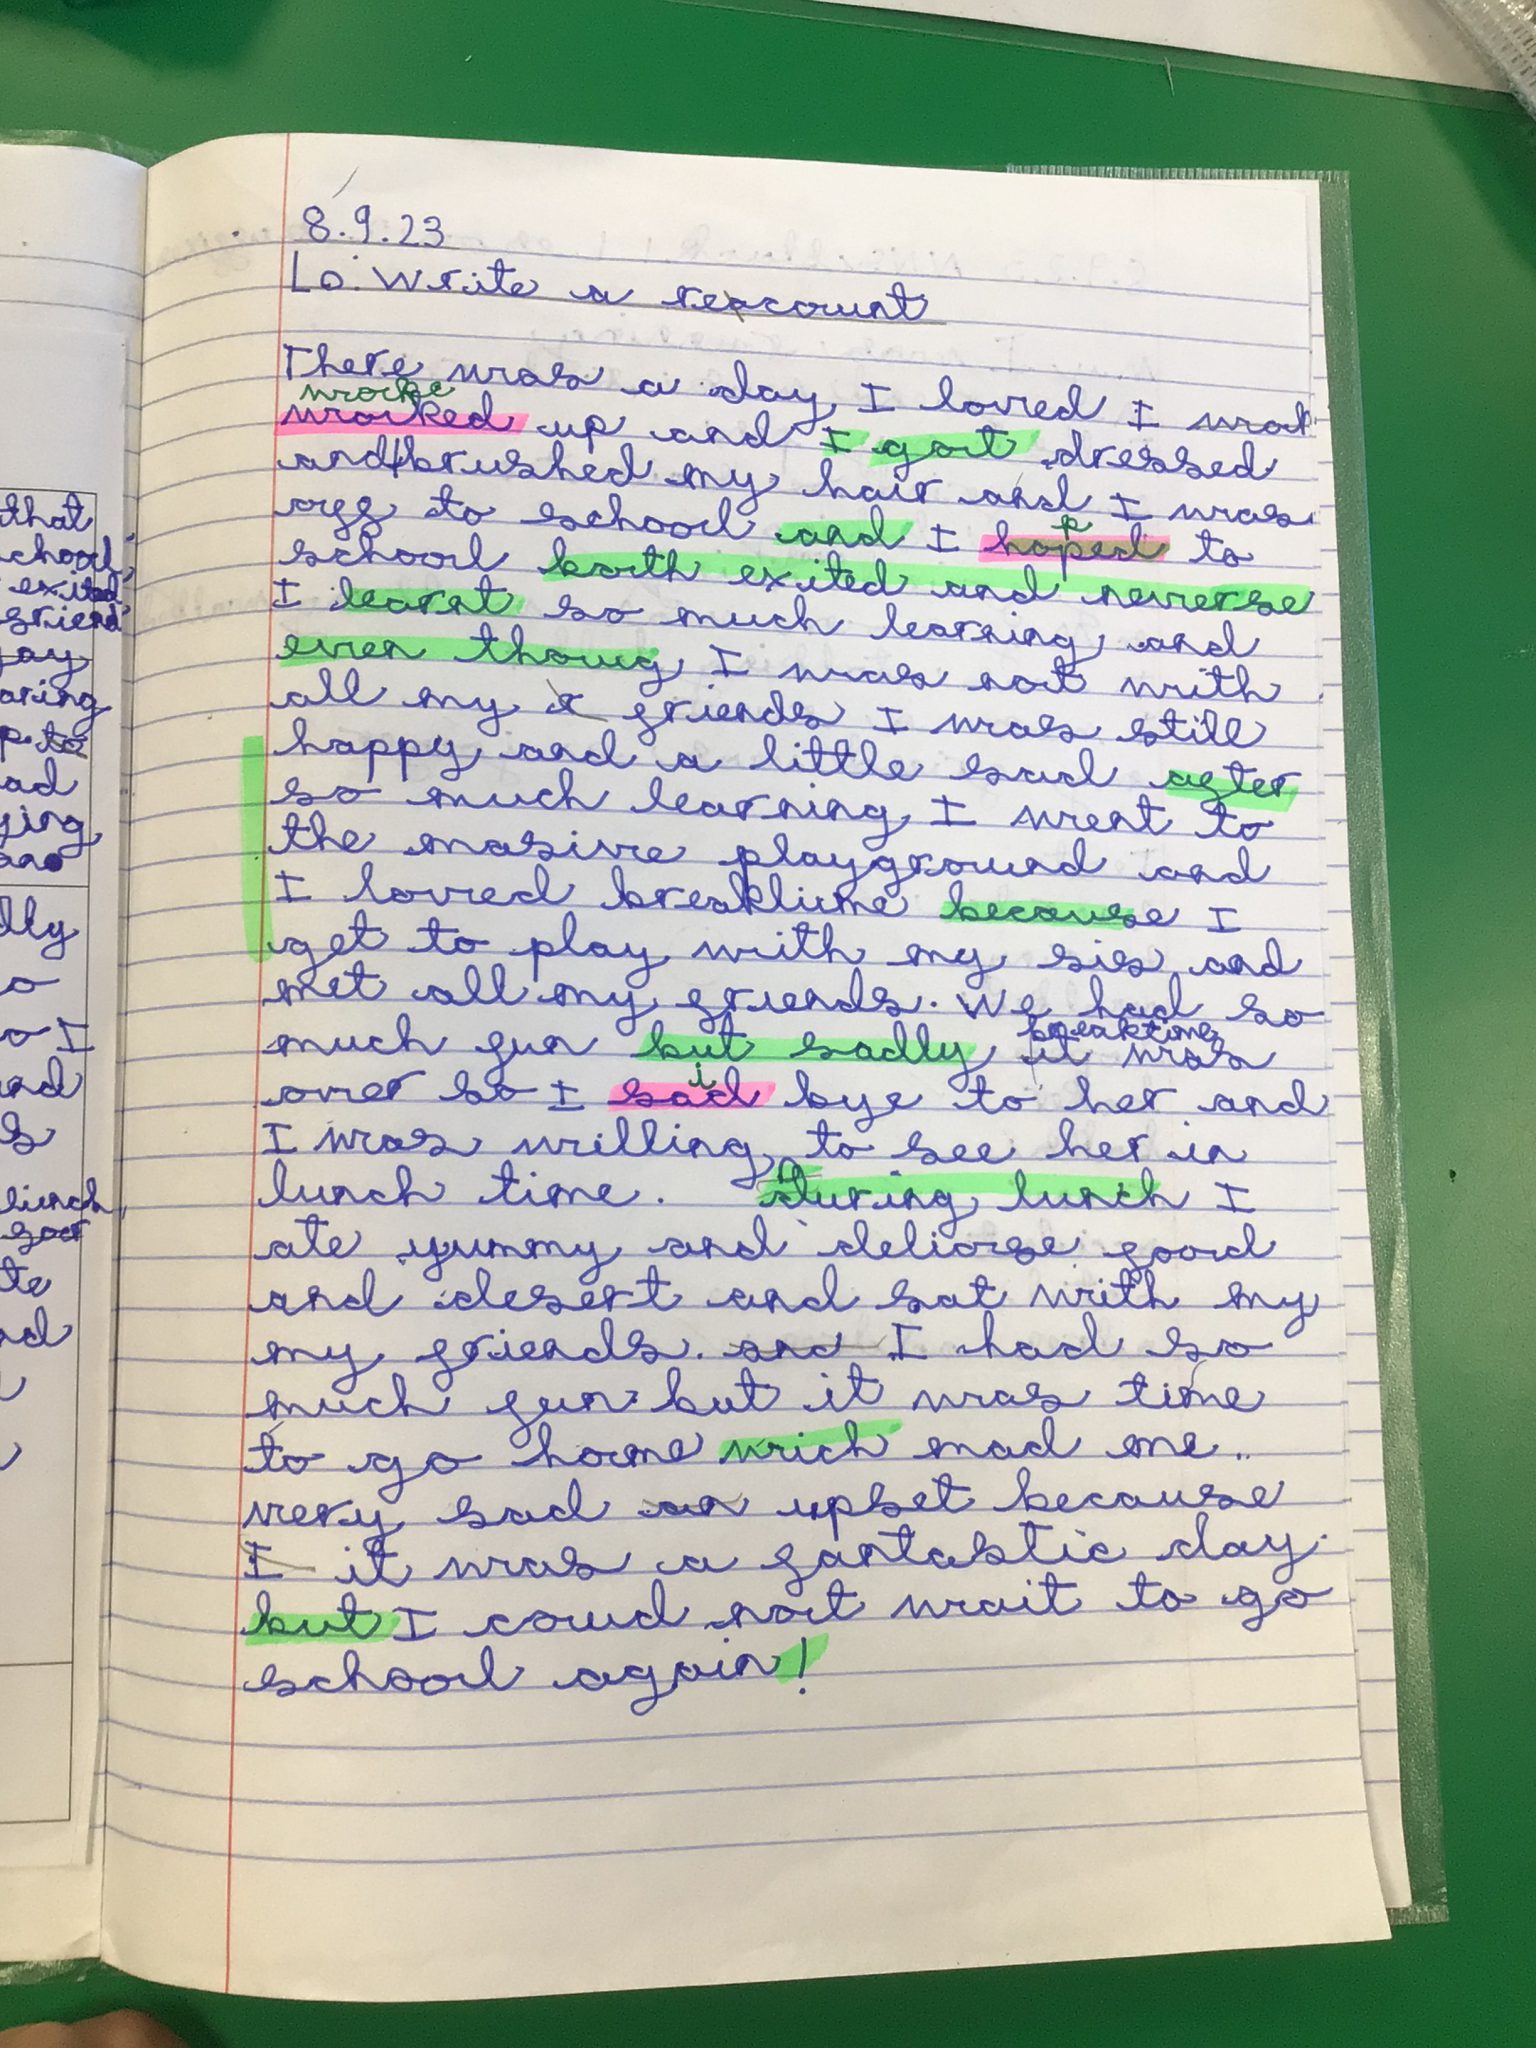 that
chool,
exited
friend
jay
aring
p to
ad
ying
ans
lly
o
o I
and
s
lunch,
te
nd
8.9.23
Lo: Write a recount
There was a day I loved I wok
wocke
worked up and I got dressed
and brushed my hair and I was
off to school and I hoped to
p
school both exited and neverse
I learnt so much learning and
even thoug I was not with
all my friends I was still
happy and a little sad after
so much learning I went to
the masive playground and
I loved breaktime because I
get to play with my sis and
met all my friends. We had so
breaktime
much fun but sadly it was
over so I sad bye to her and
i
I was willing to see her in
lunch time. During lunch I
ate yummy and deliorse food
and desert and sat with my
my friends. and I had so
much fun but it was time
to go home wich mad me..
very sad an upset because
I it was a fantastic day.
but I coud not wait to go
school again!